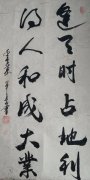 逢天时占地利
得人和成大業